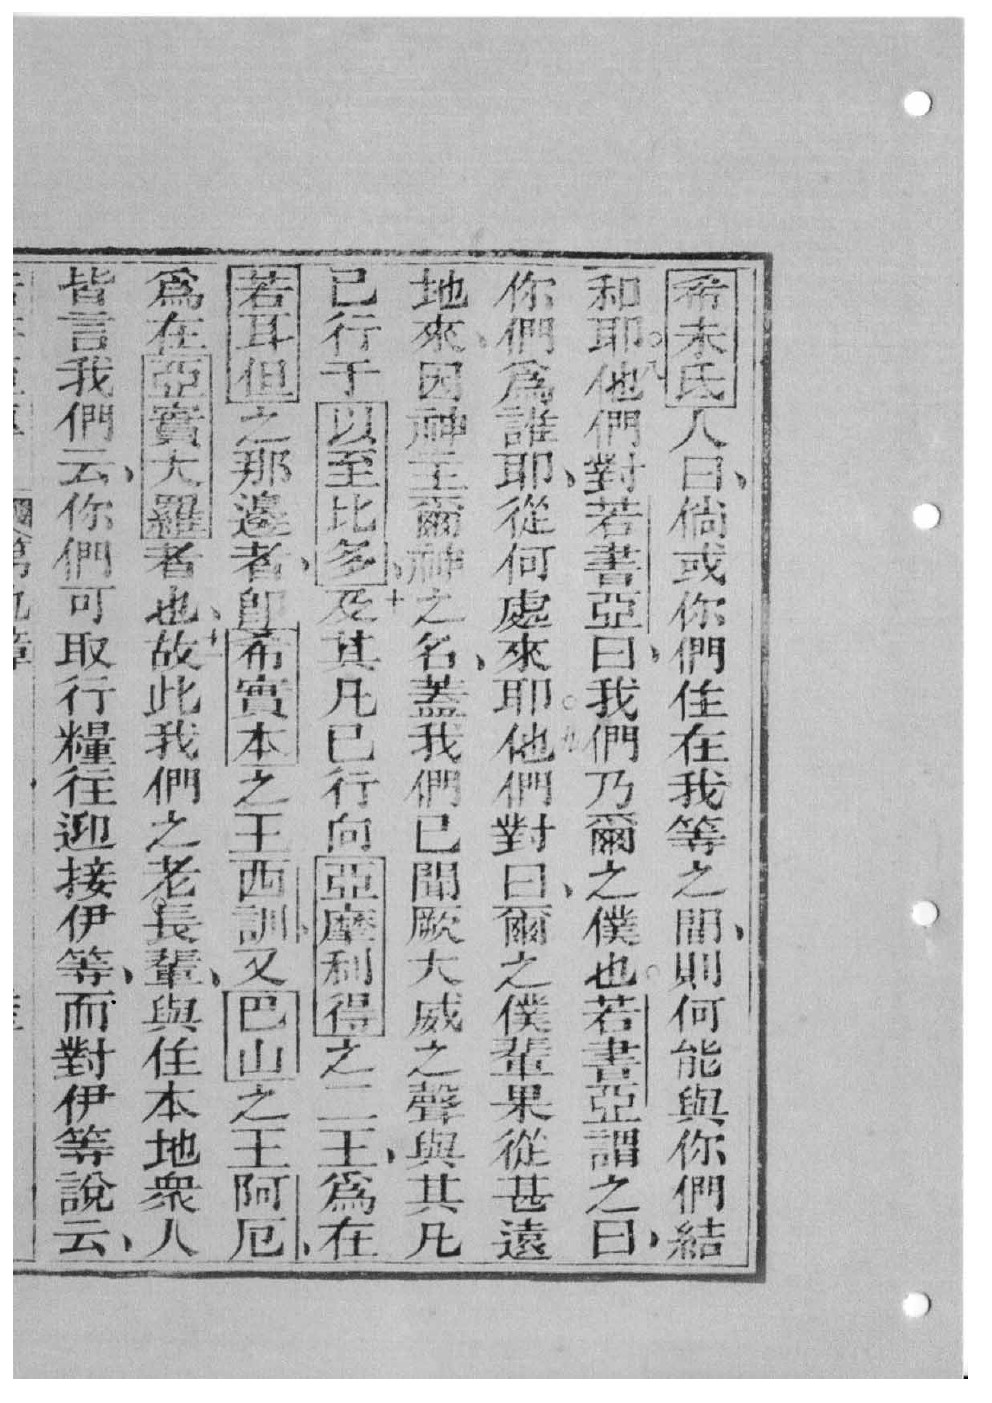 希未氏人曰倘或你們住在我等之間則何能與你們結
和耶○八他們對若書亞曰我們乃爾之僕也○若書亞謂之曰
你們爲誰耶從何處來耶○九他們對曰爾之僕輩果從甚遠
地來因神主爾神之名蓋我們已聞厥大威之聲與其凡
已行于以至比多十及其凡已行向亞摩利得之二王爲在
若耳但之那邊者卽希實本之王西訓又巴山之王阿厄
爲在亞實大羅者也十故此我們之老長輩與住本地衆人
皆言我們云你們可取行糧往迎接伊等而對伊等說云
第九章